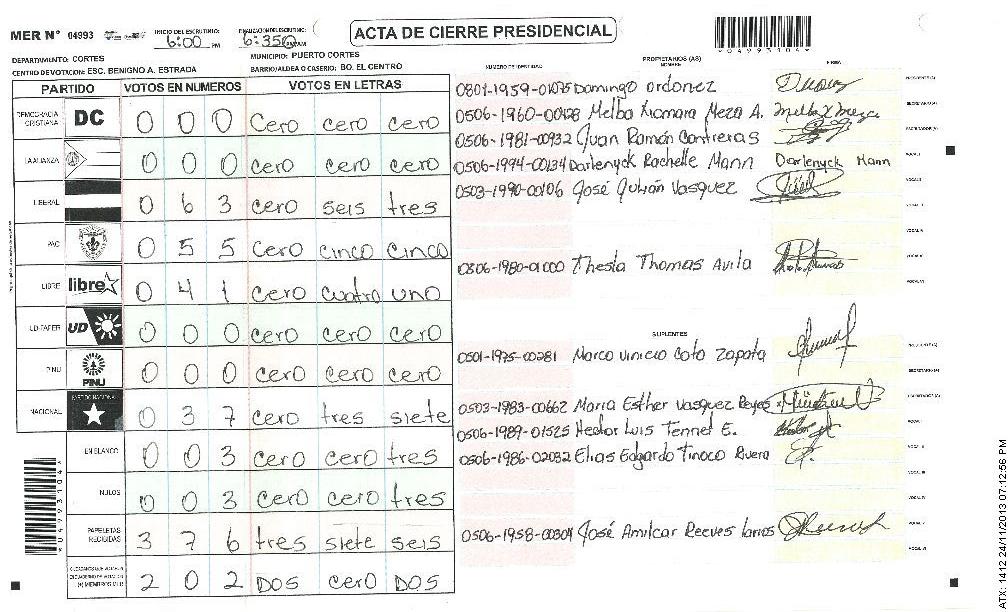 MER N° 04993
INICIO DEL ESCRUTINIO: 6:00 PM
FINALIZACION DEL ESCRUTINIO: 6:35 PM
ACTA DE CIERRE PRESIDENCIAL
*04993104*
DEPARTAMENTO: CORTES
MUNICIPIO: PUERTO CORTES
CENTRO DE VOTACION: ESC. BENIGNO A. ESTRADA
BARRIO/ALDEA O CASERIO: BO. EL CENTRO
PARTIDO VOTOS EN NUMEROS VOTOS EN LETRAS
DEMOCRACIA CRISTIANA DC 0 0 0 cero cero cero
LA ALIANZA 0 0 0 cero cero cero
LIBERAL 0 6 3 cero seis tres
PAC 0 5 5 cero cinco cinco
LIBRE libre 0 4 1 cero cuatro uno
UD-FAPER UD 0 0 0 cero cero cero
PINU PINU 0 0 0 cero cero cero
NACIONAL PARTIDO NACIONAL 0 3 7 cero tres siete
EN BLANCO 0 0 3 cero cero tres
NULOS 0 0 3 cero cero tres
PAPELETAS RECIBIDAS 3 7 6 tres siete seis
2 0 2 DOS cero DOS
*04993104*
NUMERO DE IDENTIDAD
PROPIETARIOS (AS)
NOMBRE
FIRMA
0801-1959-01075 Domingo ordonez
PRESIDENTE (A)
0506-1960-00428 Melba Xiomara Meza A. Melba X Meza
SECRETARIO (A)
0506-1981-00932 Juan Ramón Contreras
ESCRUTADOR (A)
0506-1994-00134 Darlenyck Rachelle Mann Darlenyck Mann
VOCAL I
0503-1990-00106 José Julián Vasquez
VOCAL II
0806-1980-01000 Thesla Thomas Avila
SUPLENTES
0501-1975-00281 Marco vinicio Coto Zapata
PRESIDENTE (A)
SECRETARIO (A)
0503-1983-00662 Maria Esther Vasquez Reyes
0506-1989-01525 Hector Luis Tennel E.
0506-1986-02032 Elias Edgardo Tinoco Rivera
0506-1958-00304 José Amilcar Reeves larios
ATX: 1412 24/11/2013 07:12:56 PM